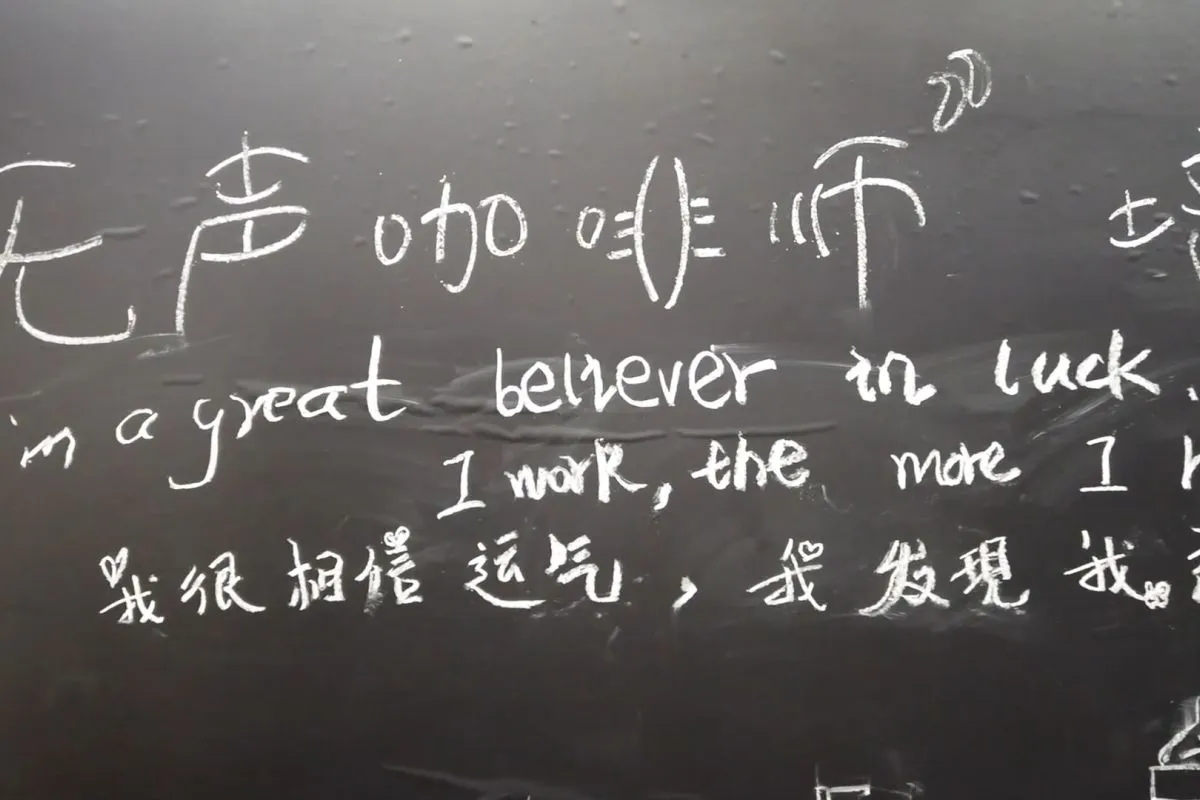 无声咖啡师
'm a great believer in luck,
I work, the more I h
我很相信运气，我发現我